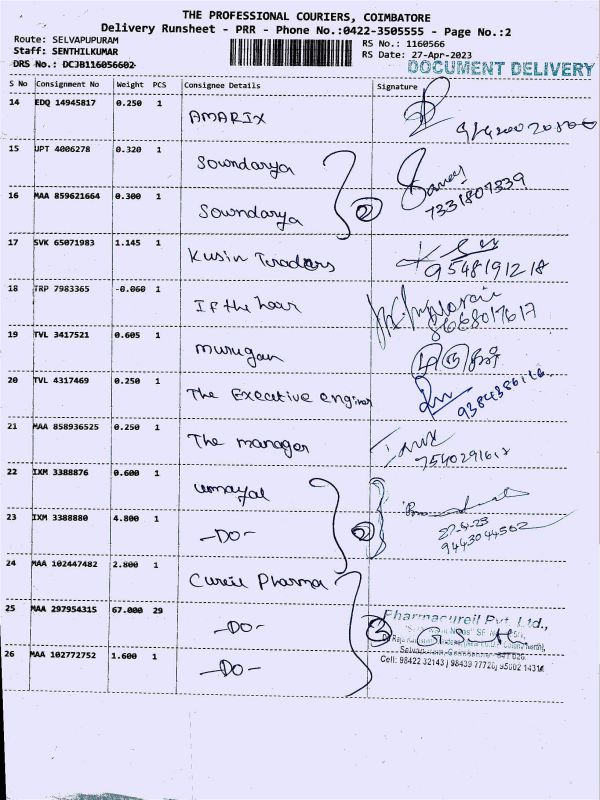 THE PROFESSIONAL COURIERS, COIMBATORE
Delivery Runsheet - PRR - Phone No.:0422-3505555 - Page No.:2
Route: SELVAPUPURAM
RS No.: 1160566
Staff: SENTHILKUMAR
RS Date: 27-Apr-2023
DRS No.: DCJB116056602
DOCUMENT DELIVERY
S No Consignment No Weight PCS Consignee Details Signature
14 EDQ 14945817 0.250 1 AMARIX
15 UPT 4006278 0.320 1 Soundarya
16 MAA 859621664 0.300 1 Soundarya 2 7331807339
17 SVK 65071983 1.145 1 Kusin Traders 9548191218
18 TRP 7983365 -0.060 1 If the hour 8668017617
19 TVL 3417521 0.605 1 murugan
20 TVL 4317469 0.250 1 The Executive enginer 9384386116
21 MAA 858936525 0.250 1 The manager
22 IXM 3388876 0.600 1 umayal
23 IXM 3388880 4.800 1 -DO- 2 27-4-23
9443044562
24 MAA 102447482 2.800 1 Cureil Pharma
25 MAA 297954315 67.000 29 -DO- 3 Pharmacureil Pvt. Ltd.,
26 MAA 102772752 1.600 1 -DO-
Cell: 98422 32143 | 98439 77726, 95002 14314